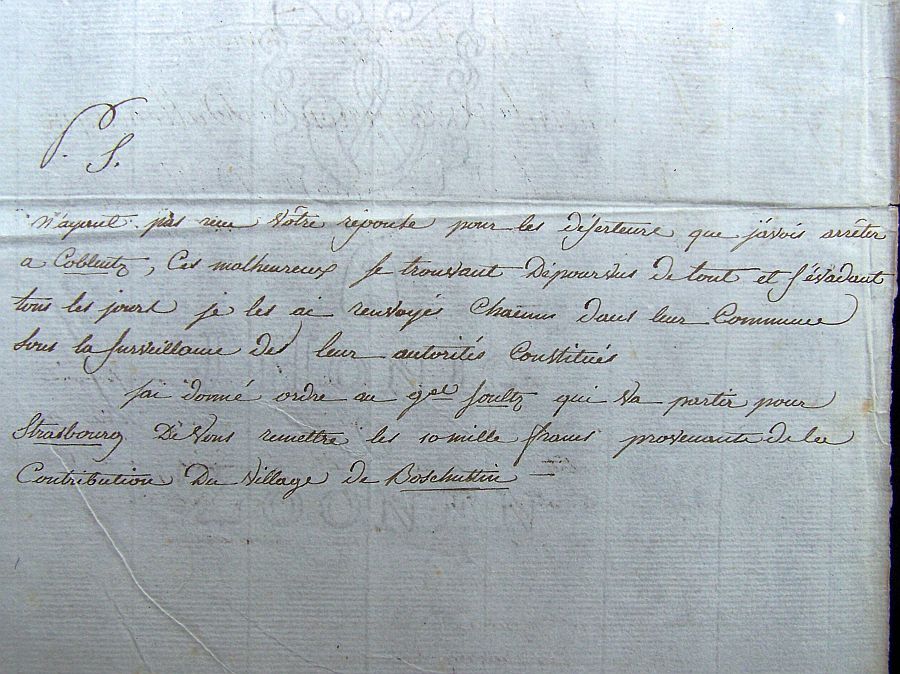 P. S.
n'ayant pas reçu vôtre réponse pour les déserteurs que j'avois arrêter
a Coblentz, Ces malheureux se trouvant Dépourvus de tout et s'évadant
tous les jours je les ai renvoyés Chacun dans leur Commune
sous la surveillance des leur autorités Constitués
j'ai donné ordre au gal Soultz qui va partir pour
Strasbourg De Vous remettre les 10 mille francs provenants de la
Contribution Du Village de Boschuttin